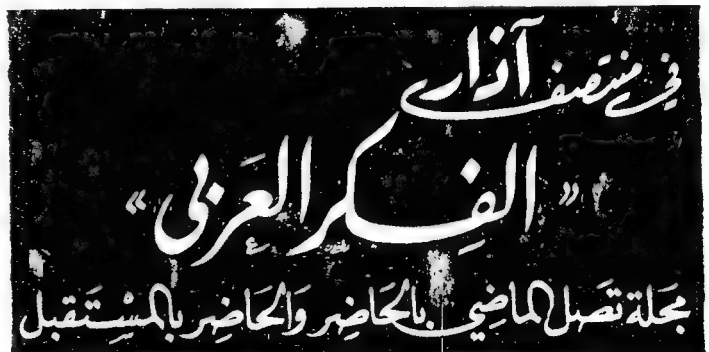 في منتصف آذار
« الفِكر العَربي »
مَجَلة تَصَل الماضِي بالحَاضِر وَالحَاضِر بالمسْتَقبل